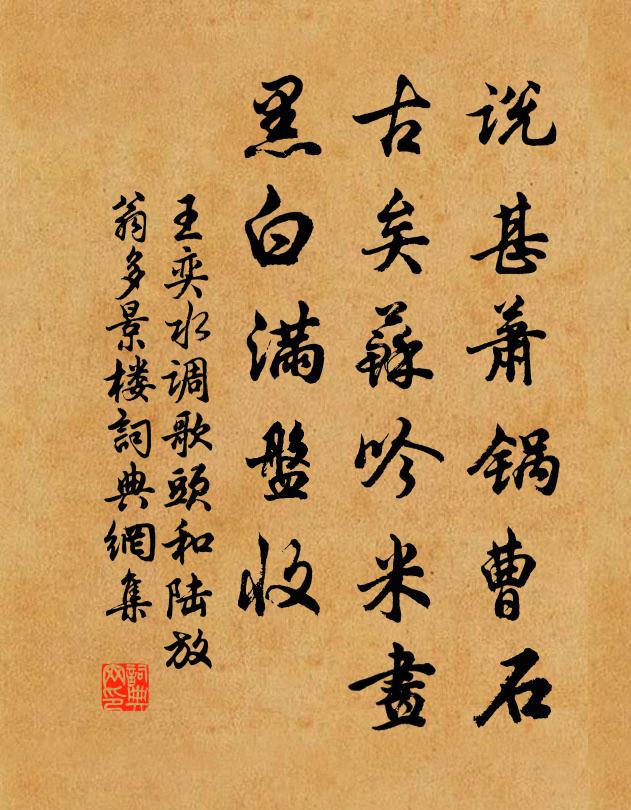 说甚萧锅曹石
古矣蘇吟米畫
黑白满盤收
王奕水调歌頭和陆放
翁多景楼詞典網集
詞典
网印